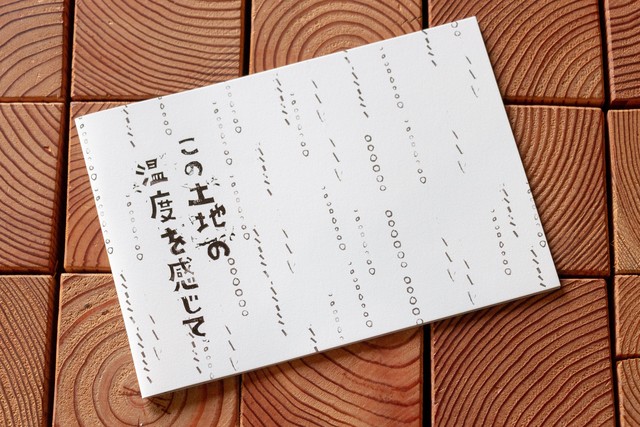 この土地の
温度を感じて